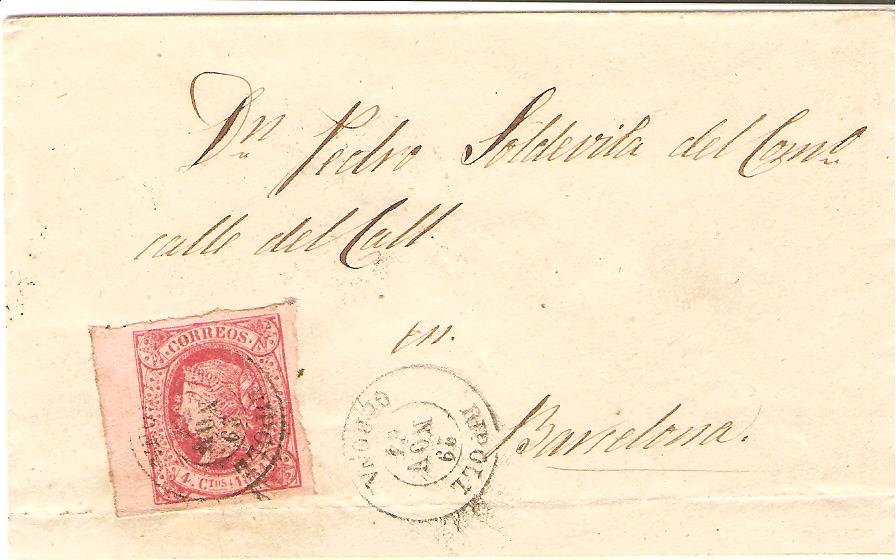 Dn Pedro Soldevila del Como
calle del Call.
en.
Barcelona.
CORREOS
4 CTOS
RIPOLL
NOV
RIPOLL
29
NOV
63
GERONA